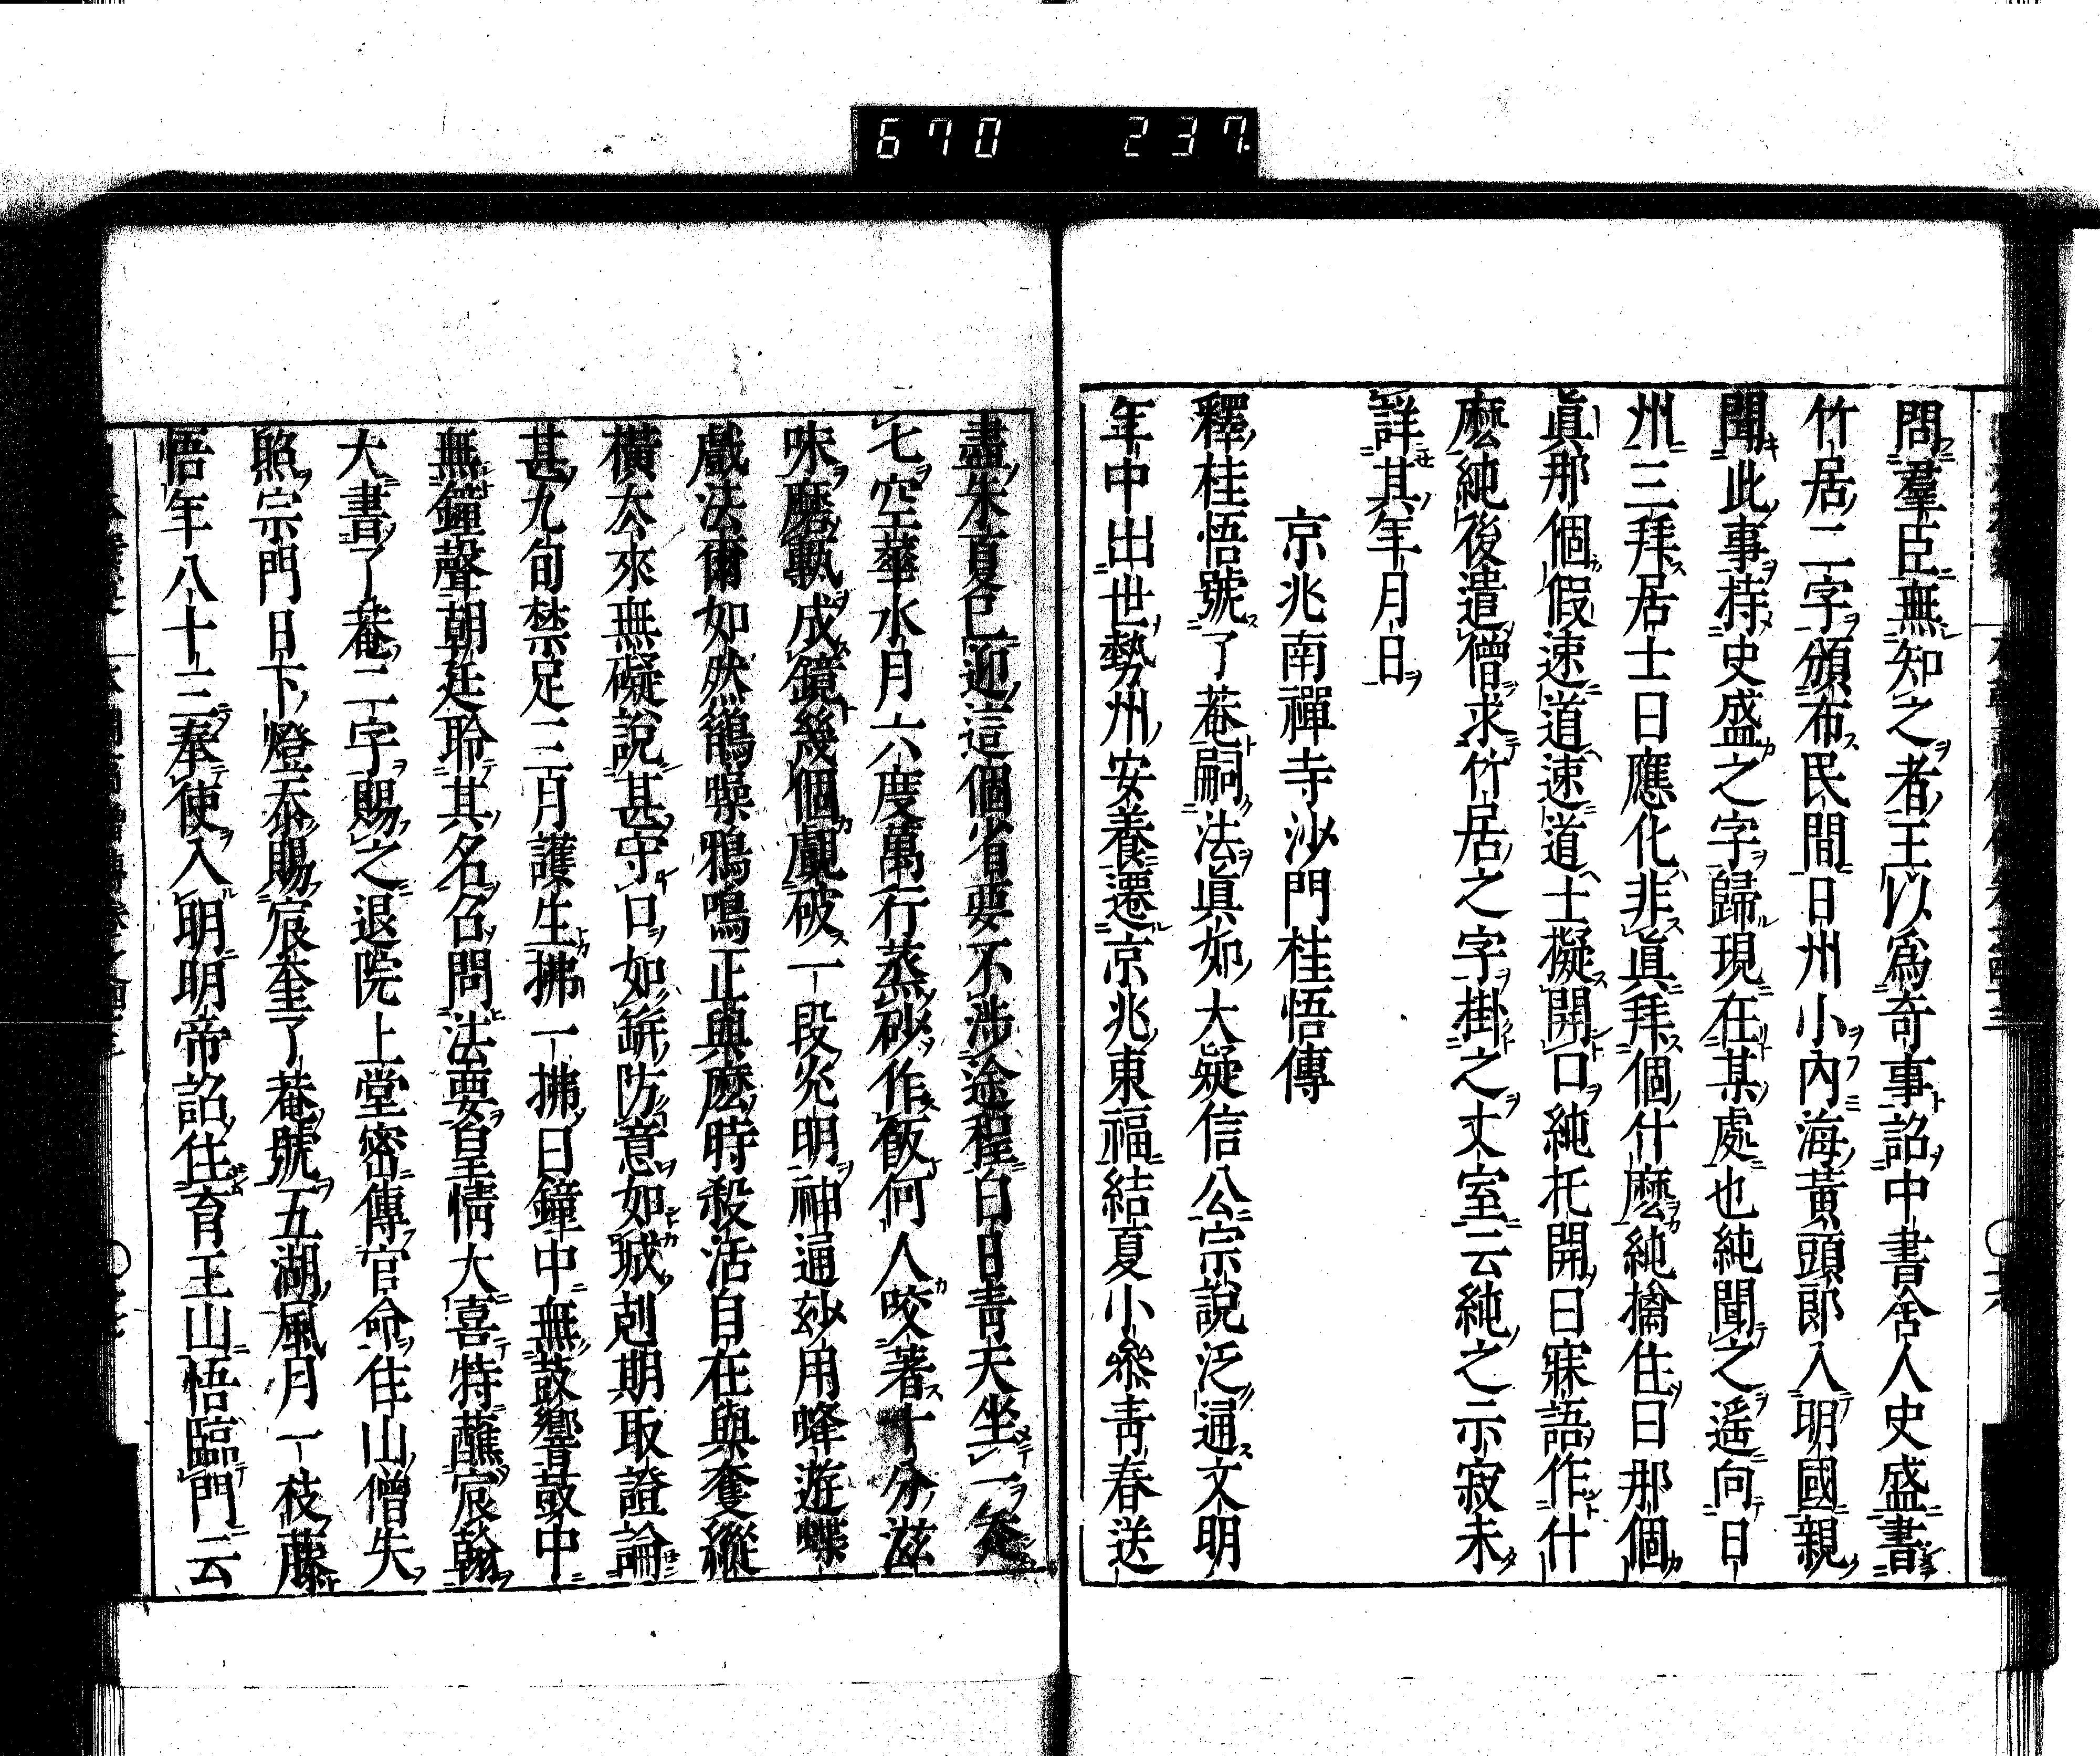 670 237.
問羣臣無知之者王以爲奇事詔中書舍人史盛書
竹居二字頒布民間日州小內海黃頭郎入明國親
聞此事持史盛之字歸現在某處也純聞之遥向日
州三拜居士曰應化非眞拜個什麽純擒住曰那個
眞那個假速道速道士擬開口純托開曰寐語作什
麽純後遣僧求竹居之字掛之丈室云純之示寂未
詳其年月日
京兆南禪寺沙門桂悟傳
釋桂悟號了菴嗣法眞如大疑信公宗說泛通文明
年中出世勢州安養遷京兆東福結夏小參靑春送
盡朱夏已迎這個省要不涉途程白日靑天坐一
七空華水月六度萬行蒸砂作飯何人咬著十分滋
味磨甎成鏡幾個覷破一段光明神通妙用蜂遊蝶
戲法爾如然鵲噪鴉鳴正與麽時殺活自在與奪縱
橫去來無礙說甚守口如缾防意如城剋期取證論
甚九旬禁足三月護生拂一拂曰鐘中無鼓響鼓中
無鐘聲朝廷聆其名召問法要皇情大喜特蘸宸翰
大書了菴二字賜之退院上堂密傳官命住山僧失
照宗門日下燈忝賜宸奎了菴號五湖風月一枝藤
悟年八十三奉使入明明帝詔住育王山悟臨門云